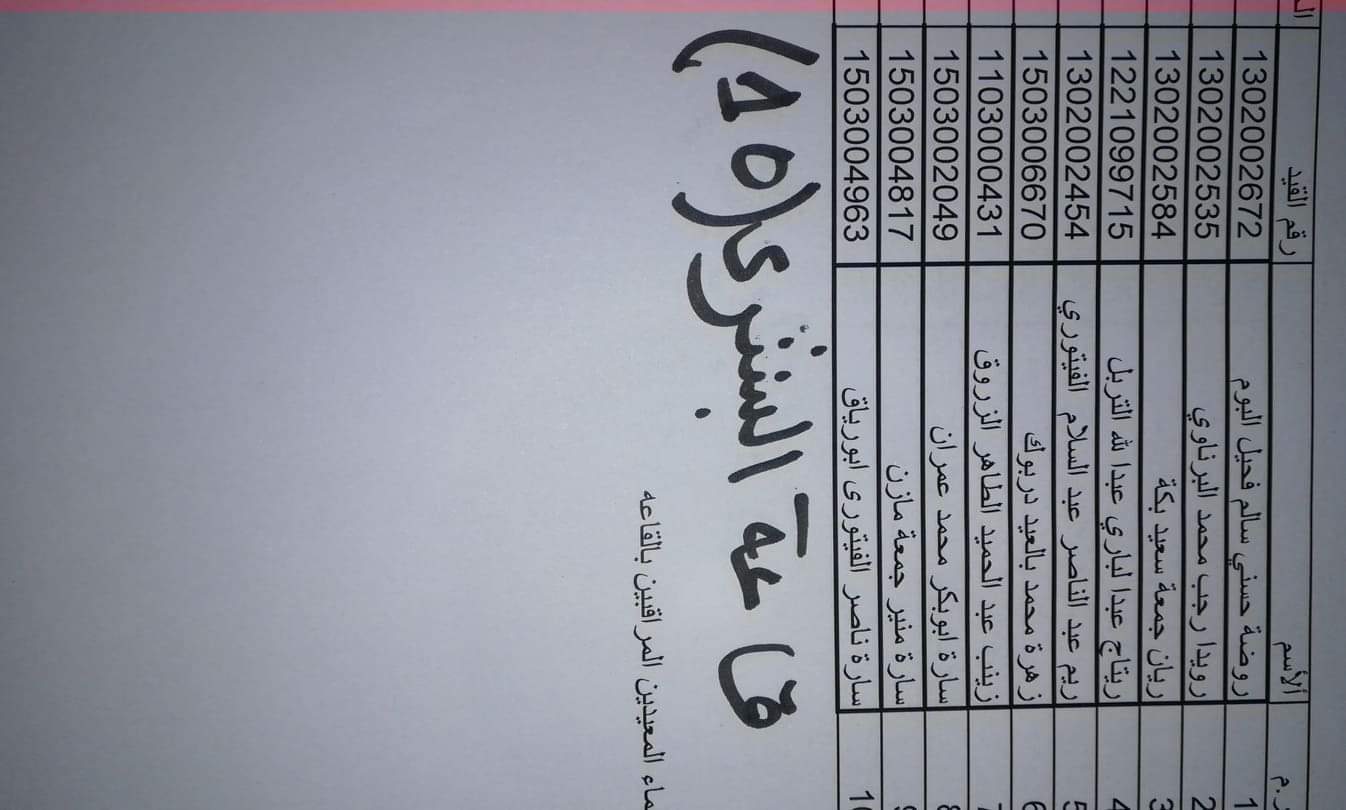 ر.م الأسم رقم القيد
1 روضة حسني سالم فحيل البوم 1302002672
2 رويدا رجب محمد البرناوي 1302002535
3 ريان جمعة سعيد بكة 1302002584
4 ريتاج عبدا لباري عبدا لله التربل 1221099715
5 ريم عبد الناصر عبد السلام الفيتوري 1302002454
6 زهرة محمد بالعيد دربوك 1503006670
7 زينب عبد الحميد الطاهر الزروق 1103000431
8 سارة ابوبكر محمد عمران 1503002049
9 سارة منير جمعة مازن 1503004817
10 سارة ناصر الفيتورى ابورياق 1503004963
قاعة البشرى (10)
المعيدين المراقبين بالقاعه